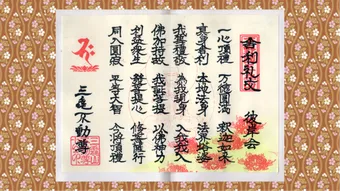 舎利礼文
彼岸会
一心頂禮 萬徳圓滿 釋迦如来
真身舎利 本地法身 法界塔婆
我等禮敬 為我現身 入我我入
佛加持故 我證菩提 以佛神力
利益衆生 發菩提心 修菩薩行
同入圓寂 平等大智 今将頂禮
不動尊